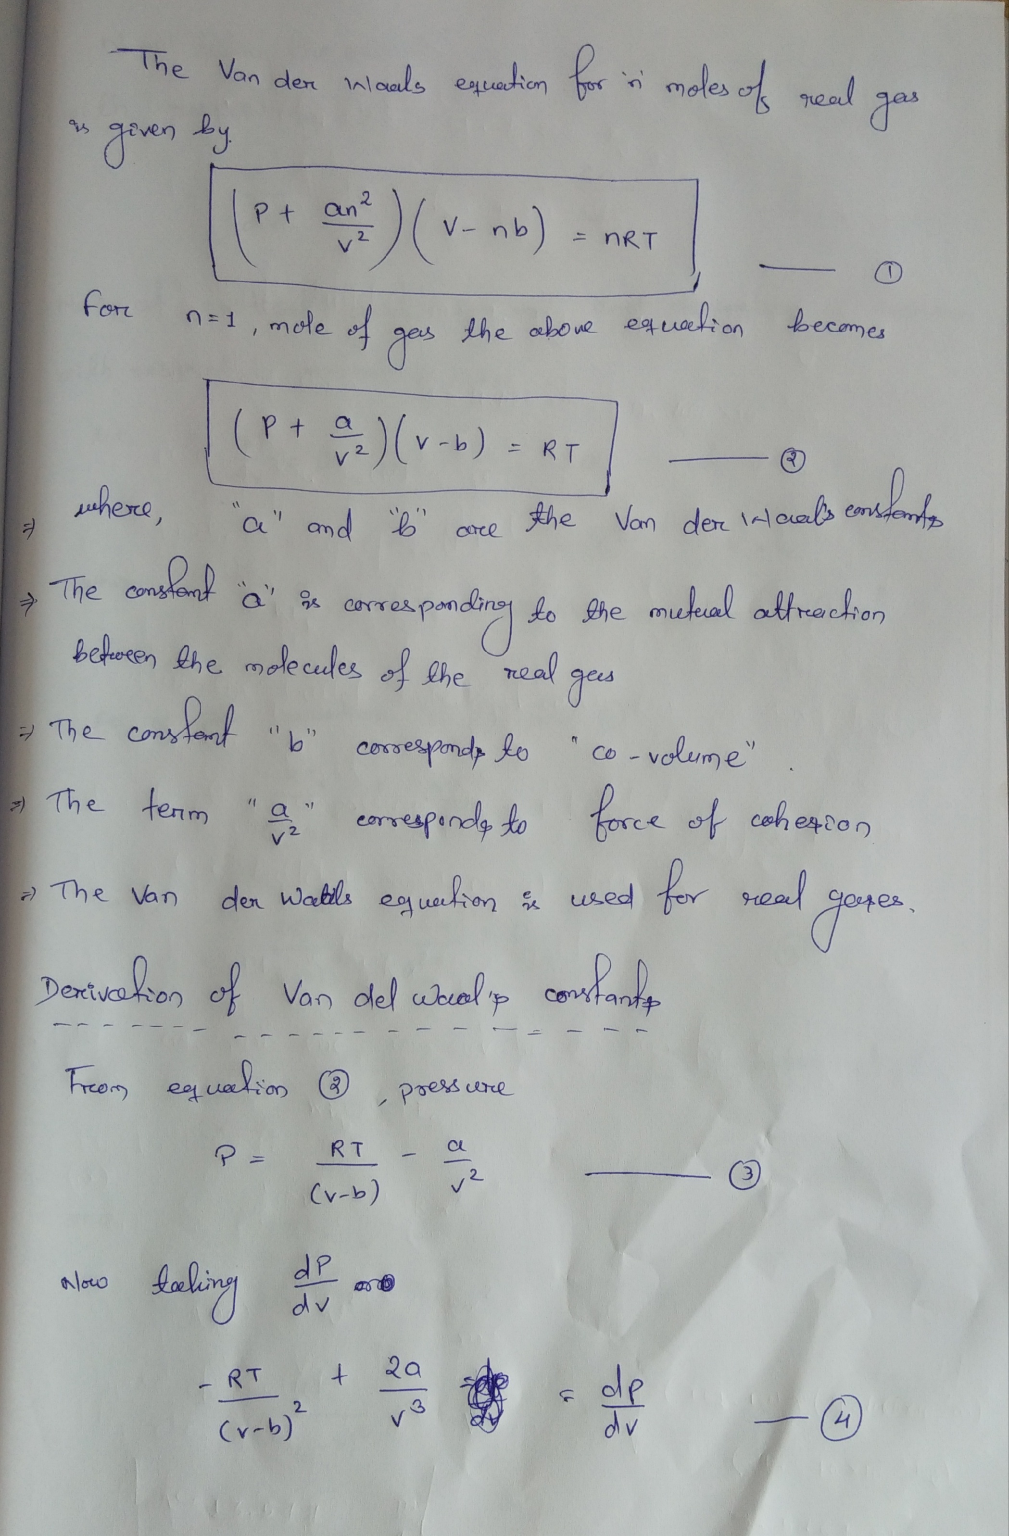 The Van der Waals equation for 'n' moles of real gas
is given by.
(P + an²/v²)(V - nb) = nRT —— ①
For n=1, mole of gas the above equation becomes
(P + a/v²)(v-b) = RT —— ②
⇒ where, "a" and "b" are the Van der Waal's constants
⇒ The constant "a" is corresponding to the mutual attraction
between the molecules of the real gas
⇒ The constant "b" corresponds to "co-volume".
⇒ The term "a/v²" corresponds to force of cohesion
⇒ The Van der Waals equation is used for real gases.
Derivation of Van del Waal's constants
From equation ②, pressure
P = RT/(v-b) - a/v² —— ③
Now taking dP/dv
-RT/(v-b)² + 2a/v³ = dp/dv —— ④